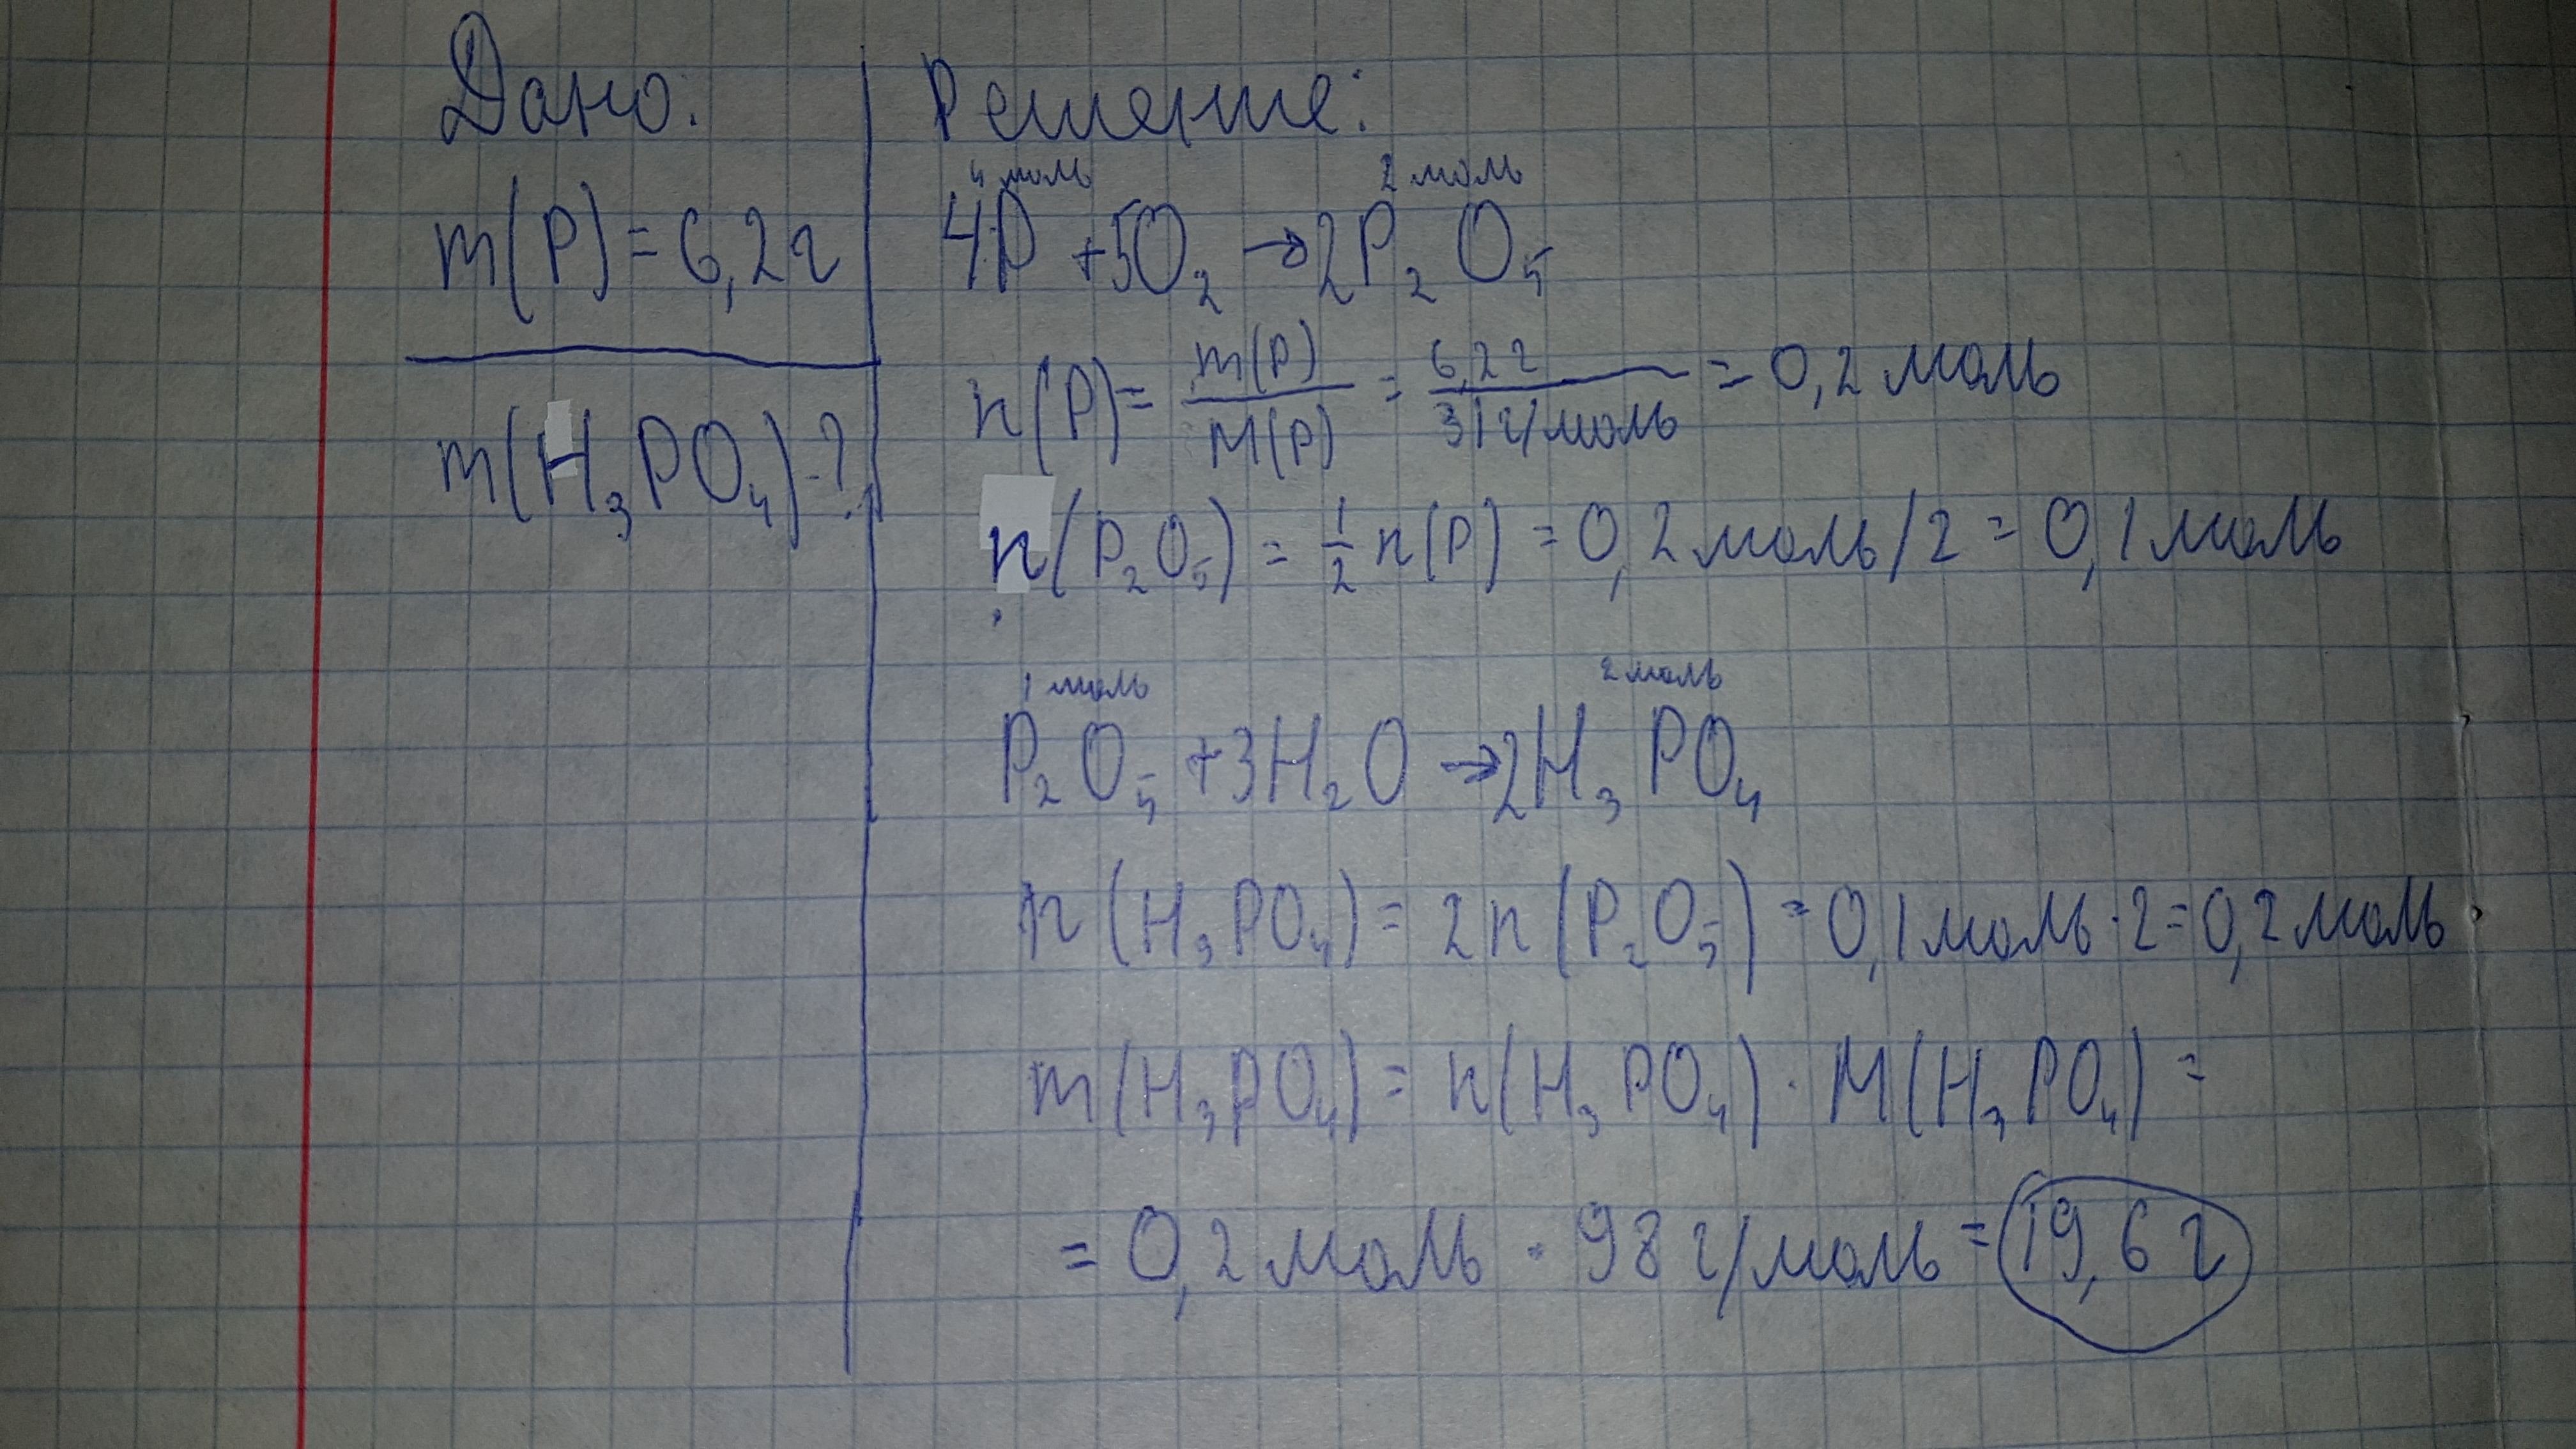 Дано:
m(P)=6,2г
m(H₃PO₄)-?
Решение:
4 моль 2 моль
4P +5O₂ →2P₂O₅
n(P)= m(P)/M(P) = 6,2г/31г/моль = 0,2 моль
n(P₂O₅) = 1/2 n(P) = 0,2 моль/2 = 0,1 моль
1 моль 2 моль
P₂O₅ +3H₂O →2H₃PO₄
n(H₃PO₄)= 2n(P₂O₅)= 0,1 моль·2=0,2 моль
m(H₃PO₄)= n(H₃PO₄)·M(H₃PO₄)=
= 0,2 моль · 98 г/моль = 19,6 г